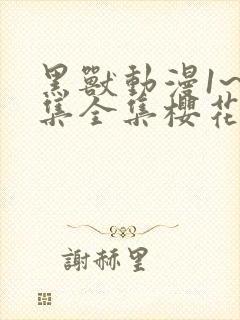 黑獸動漫1~
集全集櫻花
謝赫里